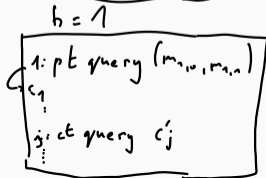 b = 1
1: pt query (m₁,₀, m₁,₁)
c₁
⋮
j: ct query c'ⱼ
⋮